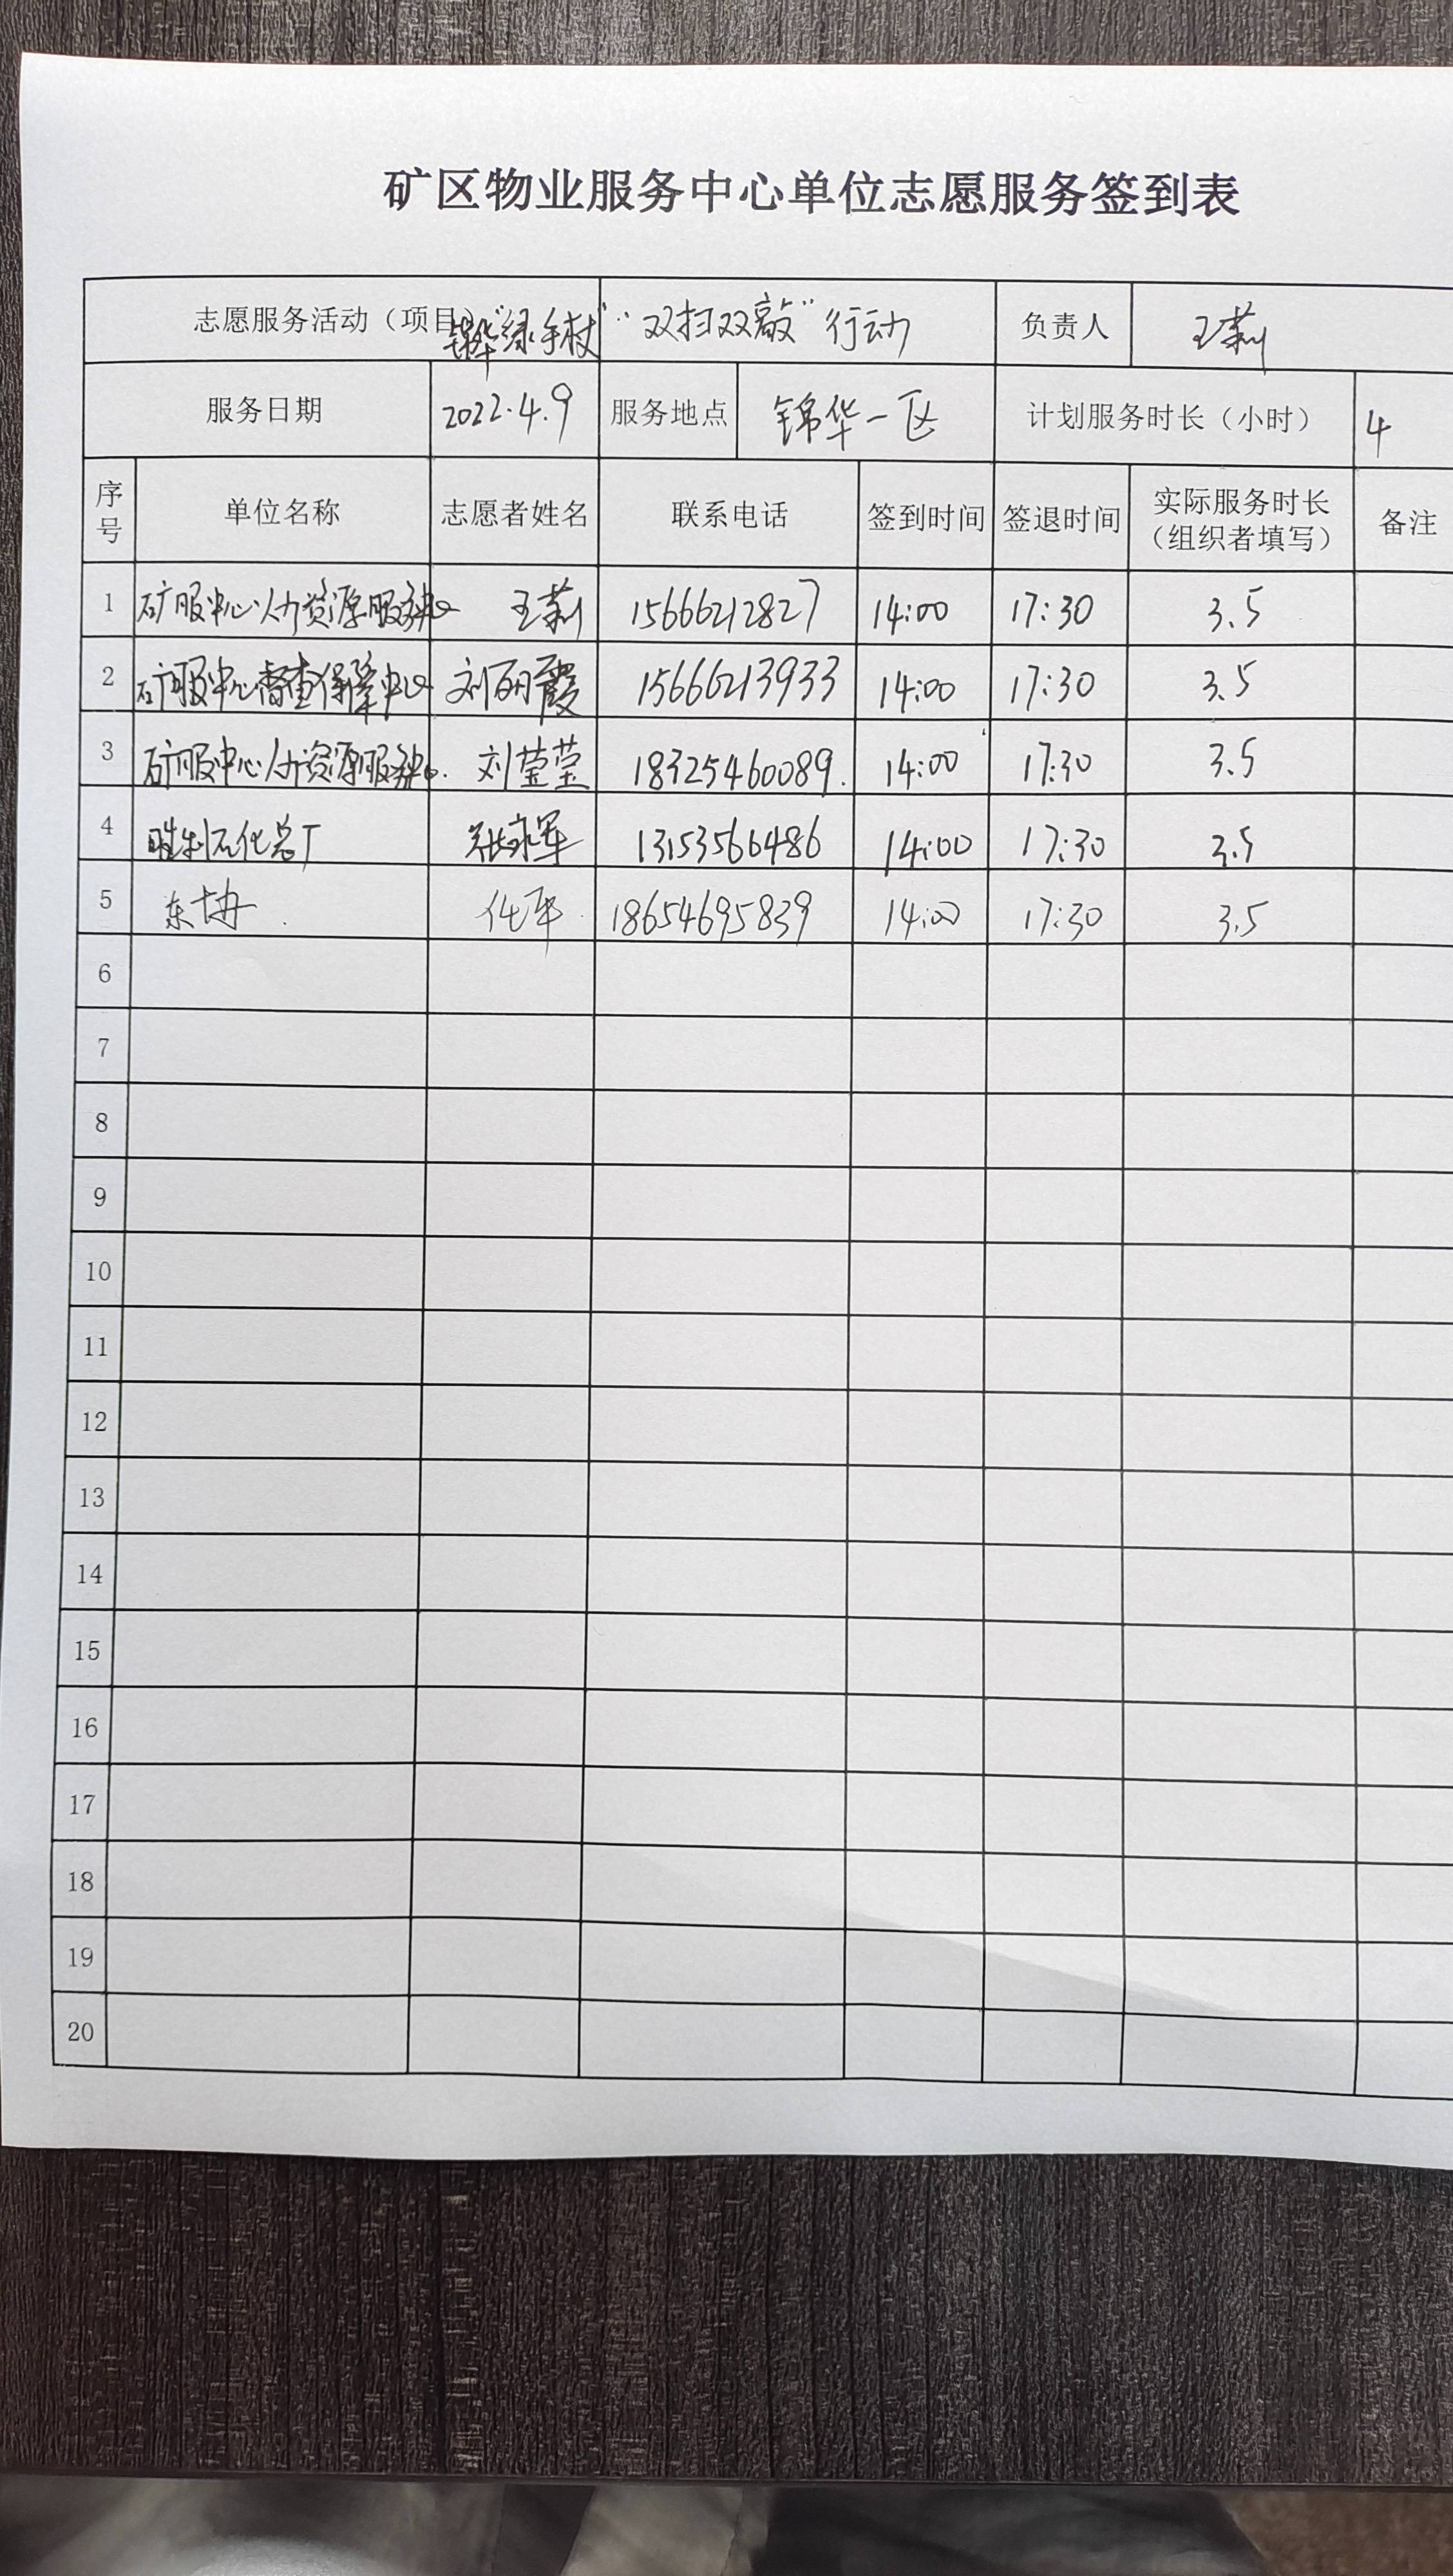 矿区物业服务中心单位志愿服务签到表
志愿服务活动（项目） 锦华“绿手杖” “双扫双敲”行动 负责人 王莉
服务日期 2022.4.9 服务地点 锦华一区 计划服务时长（小时） 4
序号 单位名称 志愿者姓名 联系电话 签到时间 签退时间 实际服务时长（组织者填写） 备注
1 矿服中心人力资源服务中心 王莉 15666212827 14:00 17:30 3.5
2 矿服中心督查保障中心 刘丽霞 15666213933 14:00 17:30 3.5
3 矿服中心人力资源服务中心. 刘莹莹 18325460089. 14:00 17:30 3.5
4 胜利石化总厂 13153566486 14:00 17:30 3.5
5 18654695839 14:00 17:30 3.5
6
7
8
9
10
11
12
13
14
15
16
17
18
19
20